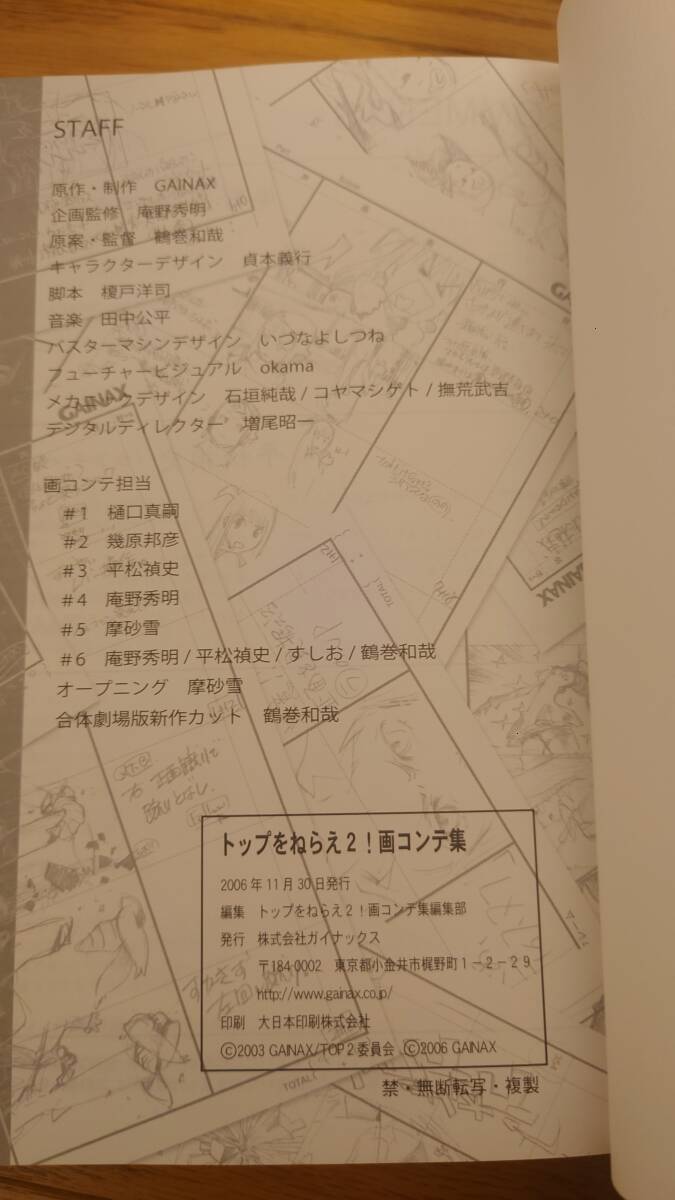 STAFF
原作・制作　GAINAX
企画監修　庵野秀明
原案・監督　鶴巻和哉
キャラクターデザイン　貞本義行
脚本　榎戸洋司
音楽　田中公平
バスターマシンデザイン　いづなよしつね
フューチャービジュアル　okama
メカニックデザイン　石垣純哉 / コヤマシゲト / 撫荒武吉
デジタルディレクター　増尾昭一
画コンテ担当
#1　樋口真嗣
#2　幾原邦彦
#3　平松禎史
#4　庵野秀明
#5　摩砂雪
#6　庵野秀明 / 平松禎史 / すしお / 鶴巻和哉
オープニング　摩砂雪
合体劇場版新作カット　鶴巻和哉
トップをねらえ2！画コンテ集
2006年11月30日発行
編集　トップをねらえ2！画コンテ集編集部
発行　株式会社ガイナックス
〒184-0002　東京都小金井市梶野町1-2-29
http://www.gainax.co.jp/
印刷　大日本印刷株式会社
©2003 GAINAX/TOP2委員会　©2006 GAINAX
禁・無断転写・複製
GAINAX
GAINAX
TOTAL
TOTAL